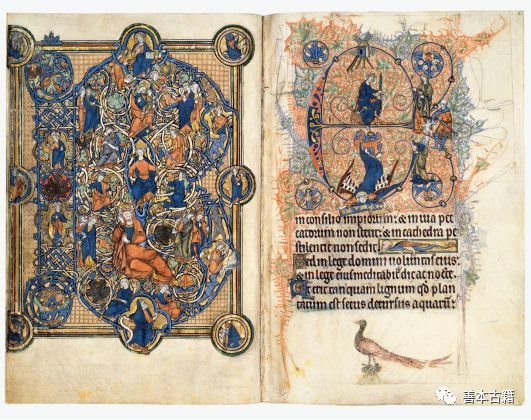 in consilio impiorum: & in uia pec
catorum non stetit: & in cathedra pe
stilentie non sedit.
Sed in lege domini uoluntas eius:
& in lege eius meditabit' die ac nocte.
Et erit tanquam lignum qd plan
tatum est secus decursus aquarum:
善本古籍